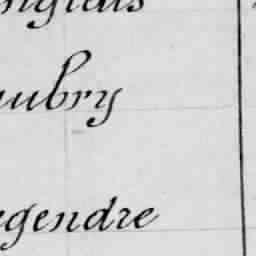 nglais
aubry
egendre